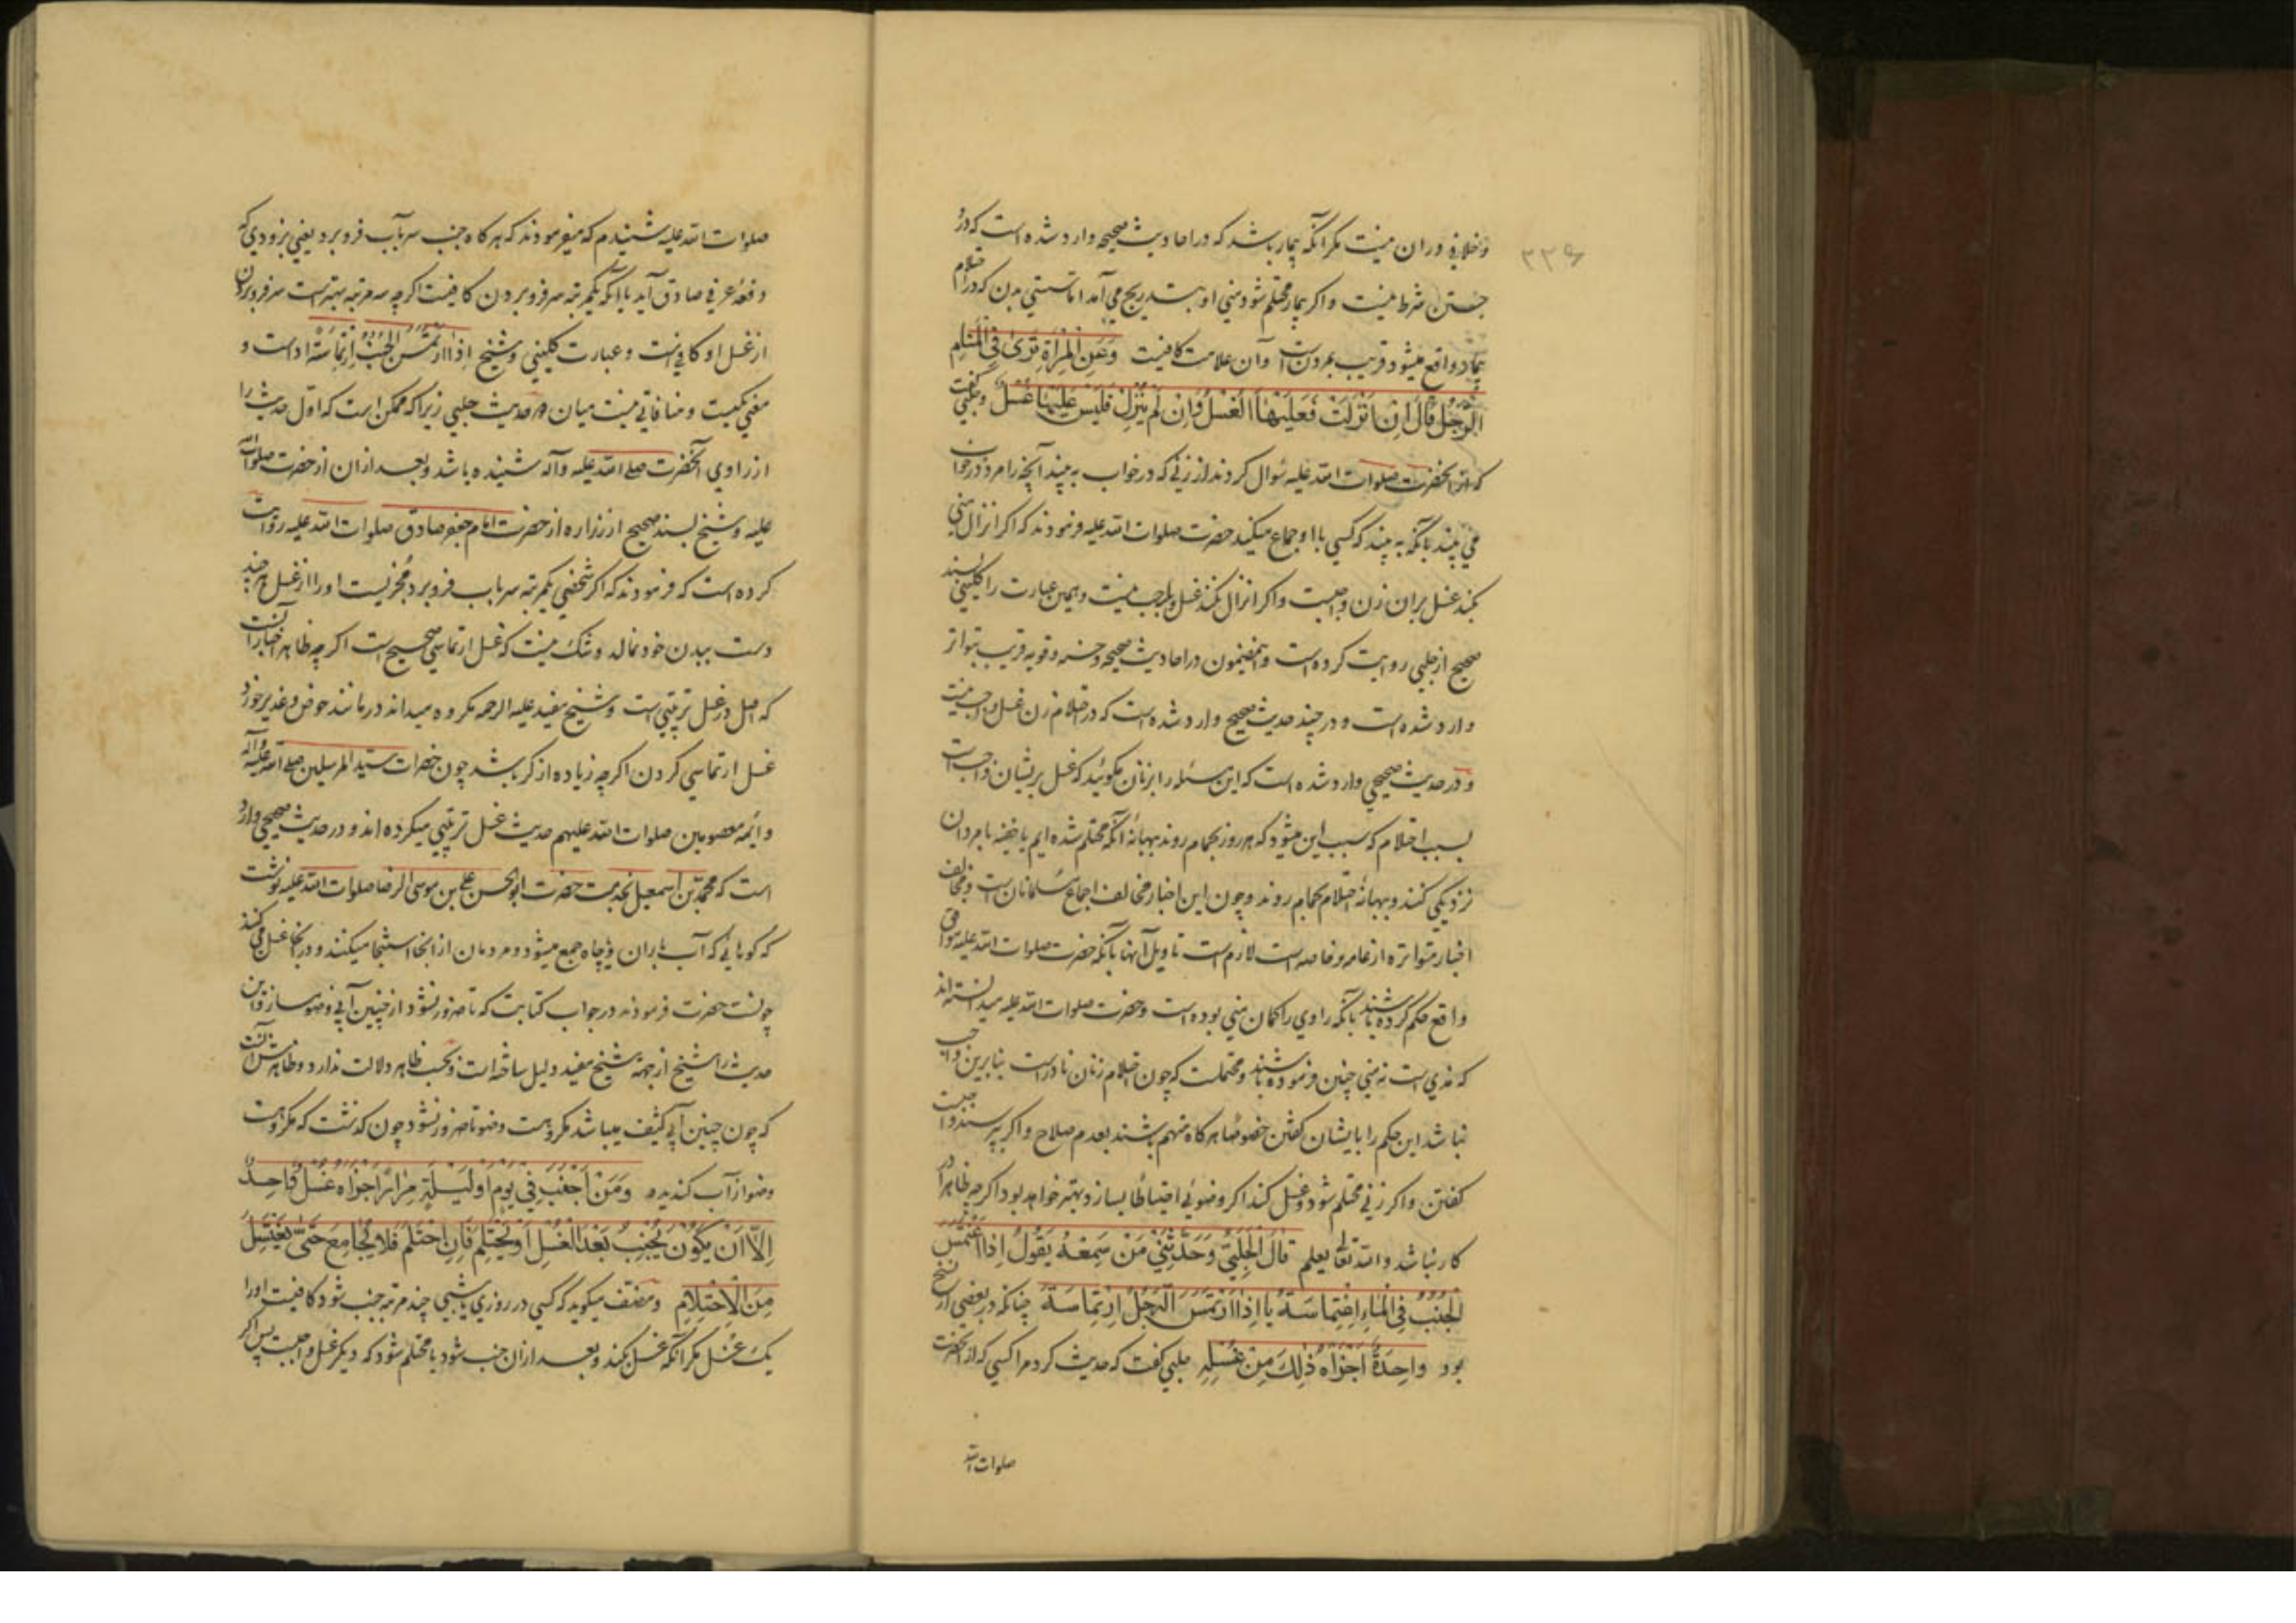 ۲۳۶
و خلافی در آن نیست مکر آنکه بیمار باشد که در احادیث صحیحه وارد شده است که در و
جستن شرط نیست و اکر بیمار محتلم شود منی او بتدریج می آمد اما سستی بدن که در احتلام
بیمار واقع میشود قریب بمردن است و آن علامت کافیست وَعَنِ الْمَرْأَةِ تَرَى فِي الْمَنَامِ
الرَّجُلِ قَالَ اِنْ اَنْزَلَتْ فَعَلَيْهَا الْغُسْلُ وَاِنْ لَمْ يُنْزِلْ فَلَيْسَ عَلَيْهَا غُسْلٌ و حلبی کفت
که از آنحضرت صلوات الله علیه سؤال کردند از زنی که در خواب به بیند آنچه را مرد در خواب
می بیند یا آنکه به بیند که کسی با او جماع میکند حضرت صلوات الله علیه فرمودند که اکر انزال منی
بکند غسل بر آن زن واجبست و اکر انزال نکند غسل واجب نیست و همین عبارت را کلینی بسند
صحیح از حلبی روایت کرده است و این مضمون در احادیث صحیحه و حسنه و قویه قریب بتواتر
وارد شده است و در چند حدیث صحیح وارد شده است که در احتلام زن غسل واجب نیست
و در حدیث صحیحی وارد شده است که این مسئله را بزنان مکوئید که غسل بر ایشان واجب است
بسبب احتلام که سبب این میشود که هر روز بحمام روند ببهانه آنکه محتلم شده ایم یا خفیه با مردان
نزدیکی کنند و ببهانه احتلام بحمام روند و چون این اخبار مخالف اجماع مسلمانان است و مخالف
اخبار متواتره از عامه و خاصه است لازم است تاویل آنها بآنکه حضرت صلوات الله علیه موافق
واقع حکم کرده باشند بآنکه راوی را کمان منی بوده است و حضرت صلوات الله علیه میدانسته اند
که مذی است نه منی چنین فرموده باشند و محتملست که چون احتلام زنان نادر است بنابرین واجب
نباشد این حکم را بایشان کفتن خصوصا هر کاه متهم باشند بعدم صلاح و اکر بپرسند واجبست
کفتن و اکر زنی محتلم شود و غسل کند اکر وضوئی احتیاطا بسازد بهتر خواهد بود اکر چه ظاهرا در
کار نباشد والله تعالی یعلم قَالَ الْحَلَبِيُّ وَحَدَّثَنِي مَنْ سَمِعَهُ يَقُولُ اِذَا اغْتَمَسَ
الْجُنُبُ فِي الْمَاءِ اِغْتِمَاسَةً یا اِذَا ارْتَمَسَ الرَّجُلُ اِرْتِمَاسَةً چنانکه در بعضی از نسخ
بود وَاحِدَةً اَجْزَاَهُ ذٰلِكَ مِنْ غُسْلِهِ حلبی کفت که حدیث کرد مرا کسی که از آنحضرت
صلوات الله
صلوات الله علیه شنیدم که میفرمودند که هر کاه جنب سر بآب فرو برد یعنی بزودی که
دفعه عرفی صادق آید یا آنکه یکمرتبه سر فرو بردن کافیست اکر چه سه مرتبه بهتر است سر فرو بردن
از غسل او کافیست و عبارت کلینی و شیخ اِذَا ارْتَمَسَ الْجُنُبُ اِرْتِمَاسَةً است و
معنی یکیست و منافاتی نیست میان دو حدیث حلبی زیرا که ممکن است که اول حدیث را
از راوی آنحضرت صلی الله علیه وآله شنیده باشد و بعد از آن از حضرت صلوات الله
علیه و شیخ بسند صحیح از زراره از حضرت امام جعفر صادق صلوات الله علیه روایت
کرده است که فرمودند که اکر شخصی یکمرتبه سر بآب فرو برد مجزیست او را از غسل هر چند
دست ببدن خود نمالد و شک نیست که غسل ارتماسی صحیح است اکر چه ظاهر اخبار آنست
که اصل در غسل ترتیبی است و شیخ مفید علیه الرحمه مکروه میداند در مانند حوض و غدیر خورد
غسل ارتماسی کردن اکر چه زیاده از کر باشد چون حضرات سید المرسلین صلی الله علیه وآله
و ائمه معصومین صلوات الله علیهم حدیث غسل ترتیبی میکرده اند و در حدیث صحیحی وارد
است که محمد بن اسمعیل بخدمت حضرت ابوالحسن علی بن موسی الرضا صلوات الله علیه نوشت
که کوهایی که آب باران و چاه جمع میشود و مردمان از آنجا استنجا میکنند و در آنجا غسل می کنند
چونست حضرت فرمودند در جواب کتابت که تا ضرور نشود از چنین آبی وضو مساز و این
حدیث را شیخ از جهة شیخ مفید دلیل ساخته است و بحسب ظاهر دلالت ندارد و ظاهرش آنست
که چون چنین آبی کثیف میباشد مکروهست وضو تا ضرور نشود چون کذشت که مکروهست
وضو از آب کندیده وَمَنْ اَجْنَبَ فِي يَوْمٍ اَوْ لَيْلَةٍ مِرَارًا اَجْزَاَهُ غُسْلٌ وَاحِدٌ
اِلَّا اَنْ يَكُونَ يُجْنِبُ بَعْدَ الْغُسْلِ اَوْ يَحْتَلِمُ فَاِنِ احْتَلَمَ فَلَا يُجَامِعْ حَتّٰى يَغْتَسِلَ
مِنَ الْاِحْتِلَامِ و مصنف میکوید که کسی در روزی یا شبی چند مرتبه جنب شود کافیست او را
یک غسل مکر آنکه غسل بکند و بعد از آن جنب شود یا محتلم شود که دیکر غسل واجبست پس اکر